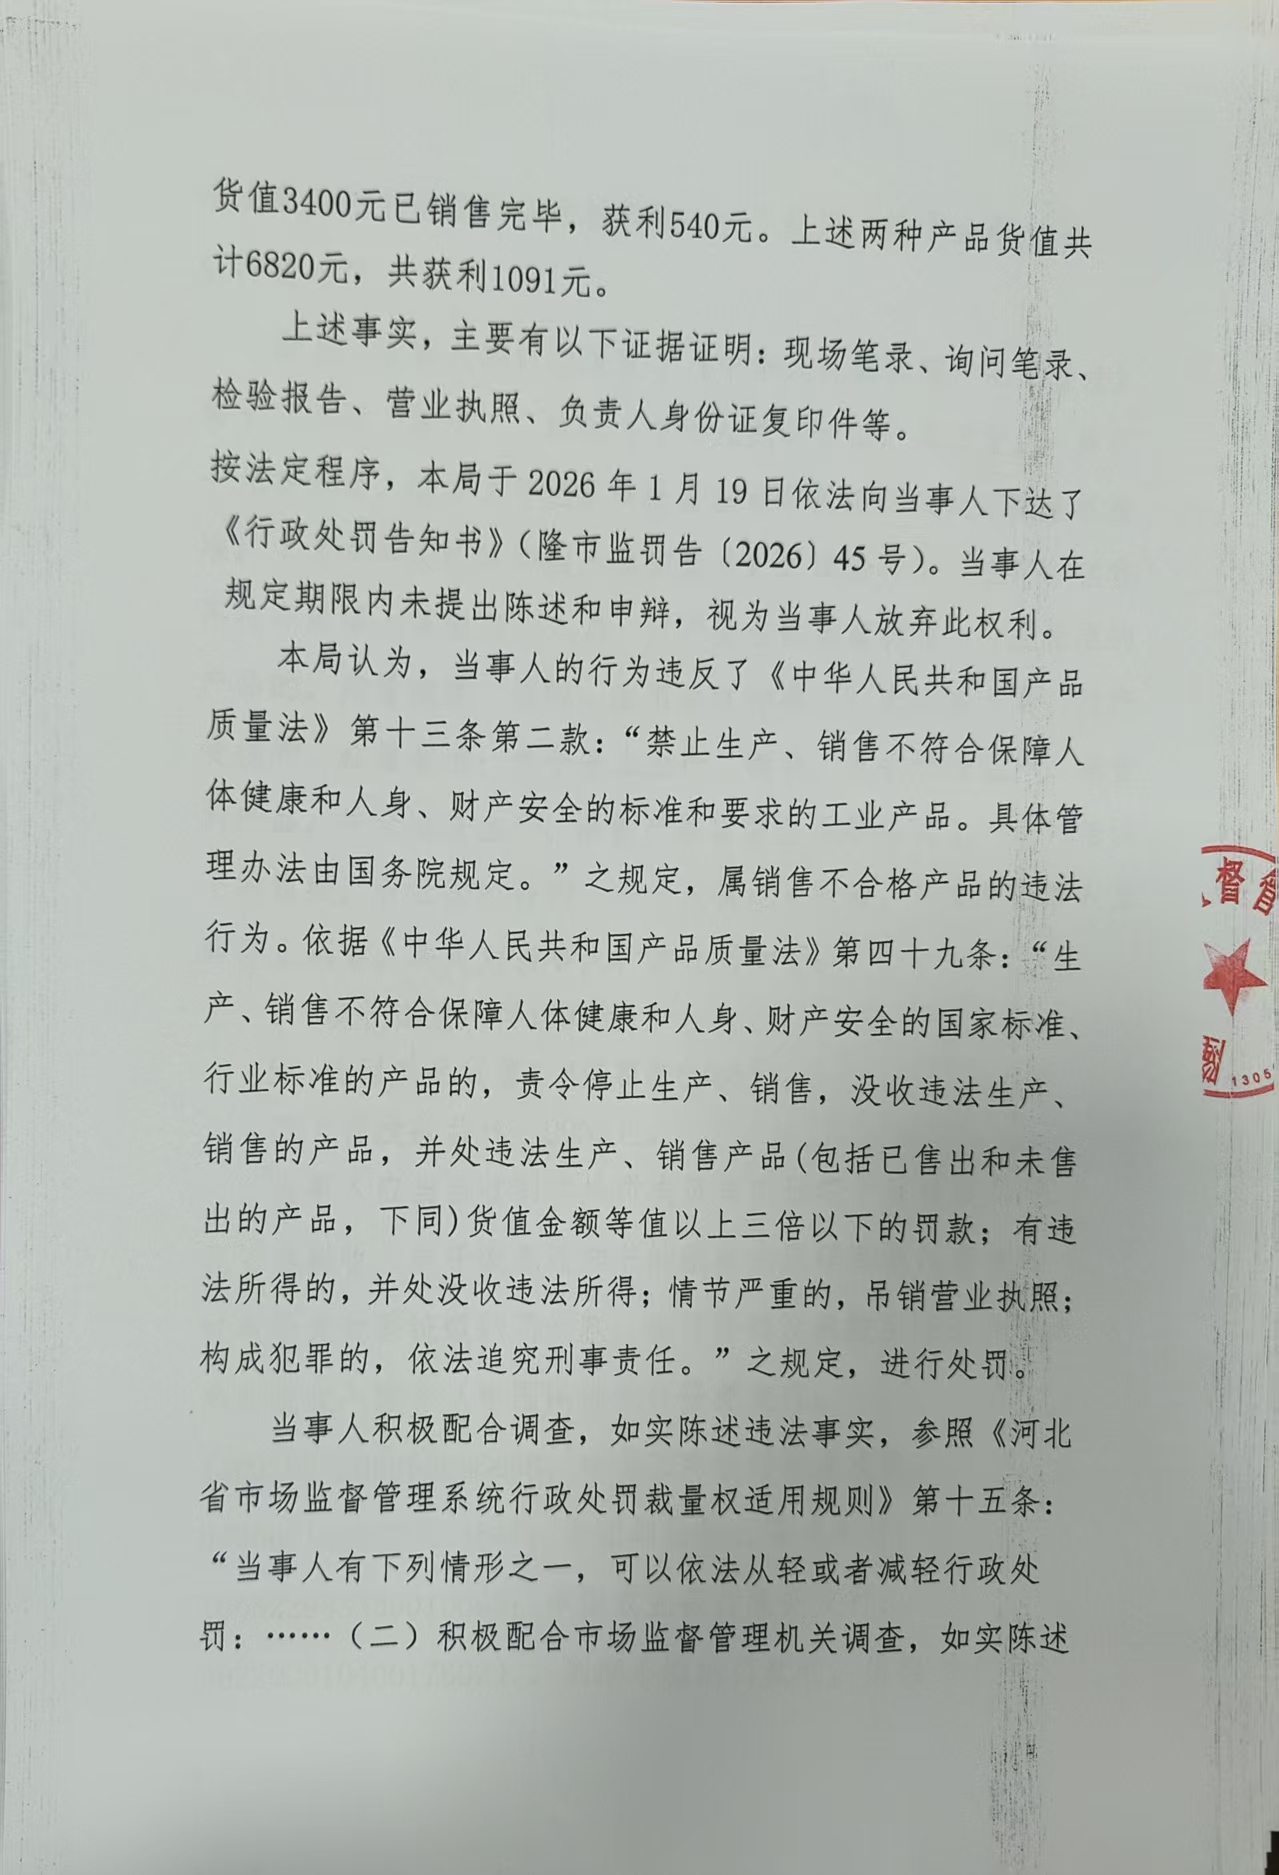 货值3400元已销售完毕，获利540元。上述两种产品货值共
计6820元，共获利1091元。
上述事实，主要有以下证据证明：现场笔录、询问笔录、
检验报告、营业执照、负责人身份证复印件等。
按法定程序，本局于 2026 年 1 月 19 日依法向当事人下达了
《行政处罚告知书》（隆市监罚告〔2026〕45 号）。当事人在
规定期限内未提出陈述和申辩，视为当事人放弃此权利。
本局认为，当事人的行为违反了《中华人民共和国产品
质量法》第十三条第二款：“禁止生产、销售不符合保障人
体健康和人身、财产安全的标准和要求的工业产品。具体管
理办法由国务院规定。”之规定，属销售不合格产品的违法
行为。依据《中华人民共和国产品质量法》第四十九条：“生
产、销售不符合保障人体健康和人身、财产安全的国家标准、
行业标准的产品的，责令停止生产、销售，没收违法生产、
销售的产品，并处违法生产、销售产品(包括已售出和未售
出的产品，下同)货值金额等值以上三倍以下的罚款；有违
法所得的，并处没收违法所得；情节严重的，吊销营业执照；
构成犯罪的，依法追究刑事责任。”之规定，进行处罚。
当事人积极配合调查，如实陈述违法事实，参照《河北
省市场监督管理系统行政处罚裁量权适用规则》第十五条：
“当事人有下列情形之一，可以依法从轻或者减轻行政处
罚：……（二）积极配合市场监督管理机关调查，如实陈述
督
1305